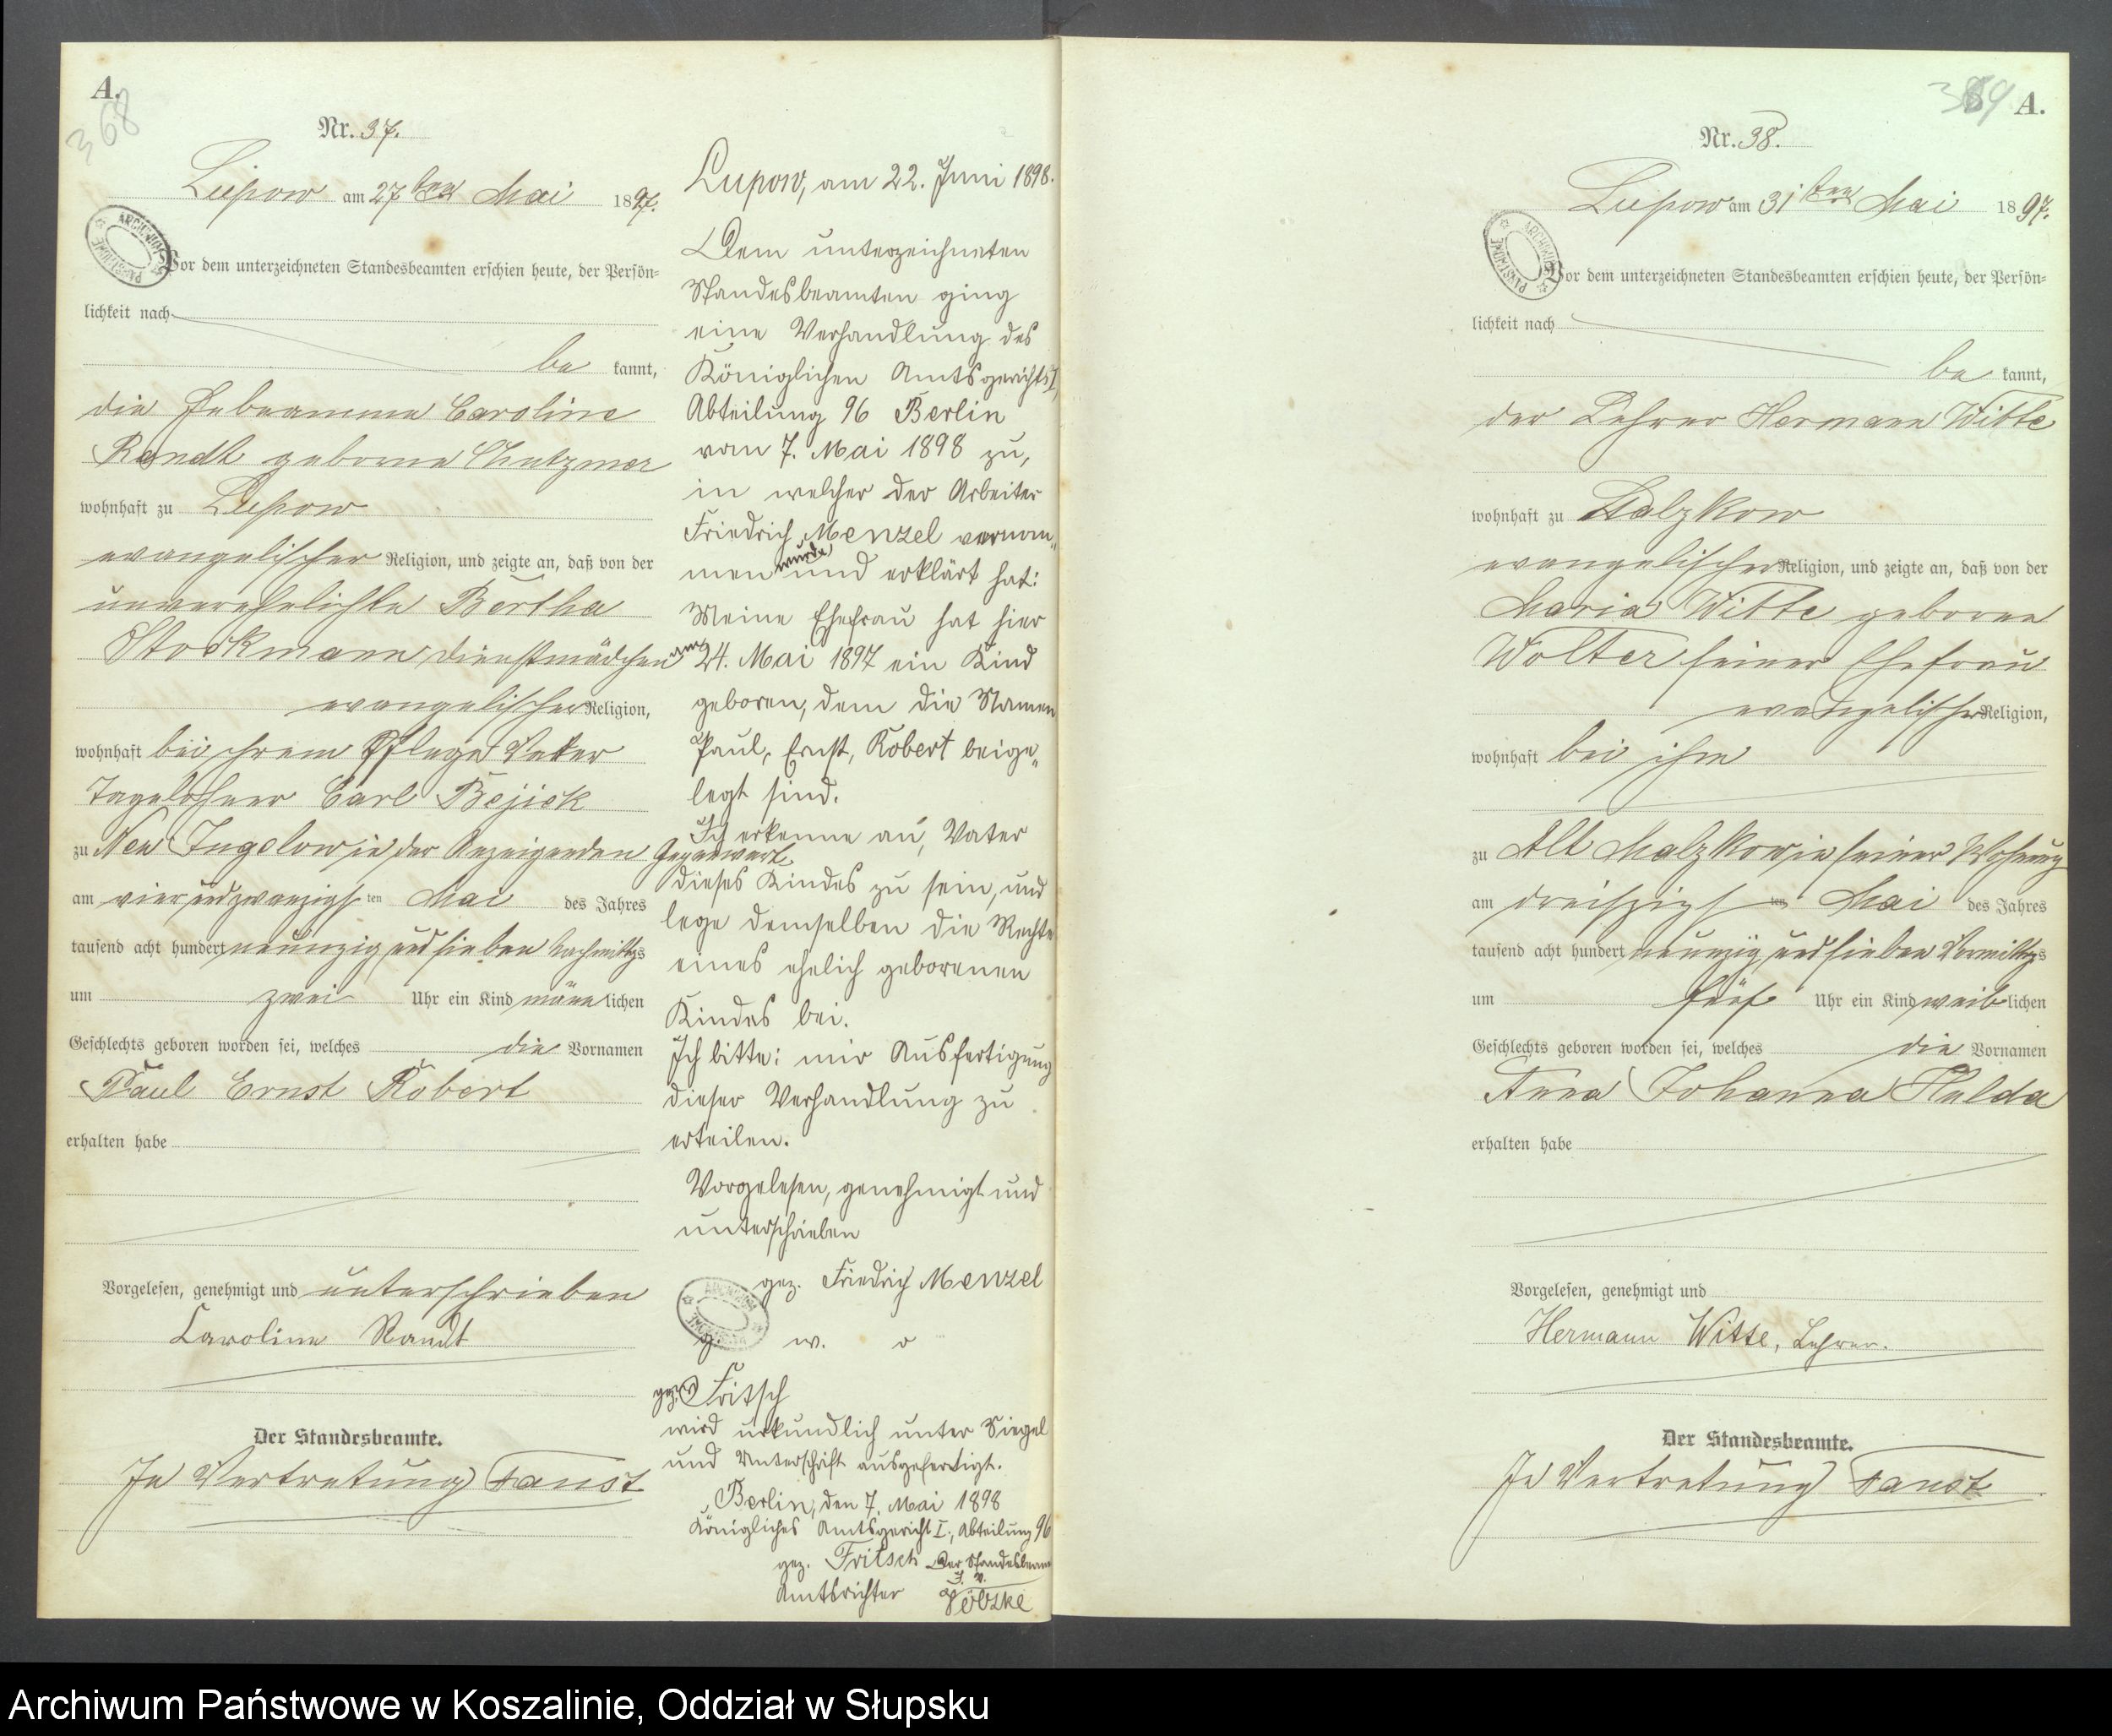 A.
368
Nr. 37.
Lupow am 27ten Mai 1897.
Vor dem unterzeichneten Standesbeamten erschien heute, der Persön=
lichkeit nach
be kannt,
die Hebeamme Caroline
Randt geborne
wohnhaft zu Lupow
evangelischer Religion, und zeigte an, daß von der
unverehelichte Bertha
Stockmann Dienstmädchen
evangelischer Religion,
wohnhaft bei ihrem Pflege Vater
Tagelöhner Carl Bejick
zu Neu Jugelow, in der Anzeigenden Gegenwart
am vier und zwanzigsten Mai des Jahres
tausend acht hundert neunzig und sieben Nachmittags
um zwei Uhr ein Kind männlichen
Geschlechts geboren worden sei, welches die Vornamen
Paul Ernst Robert
erhalten habe
Vorgelesen, genehmigt und unterschrieben
Caroline Randt
Der Standesbeamte.
In Vertretung Faust
Lupow, am 22. Juni 1898.
Dem unterzeichneten
Standesbeamten ging
eine Verhandlung des
Königlichen Amtsgerichts I,
Abteilung 96 Berlin
vom 7. Mai 1898 zu,
in welcher der Arbeiter
Friedrich Menzel vernom„
men wurde und erklärt hat:
Meine Ehefrau hat hier
am 24. Mai 1897 ein Kind
geboren, dem die Namen
Paul, Ernst, Robert beige„
legt sind.
Ich erkenne an, Vater
dieses Kindes zu sein, und
lege demselben die Rechte
eines ehelich geborenen
Kindes bei.
Ich bitte: mir Ausfertigung
dieser Verhandlung zu
erteilen.
Vorgelesen, genehmigt und
unterschrieben
gez. Friedrich Menzel
g. w. o
gez. Fritsch
wird urkundlich unter Siegel
und Unterschrift ausgefertigt.
Berlin, den 7. Mai 1898
Königliches Amtsgericht I., Abteilung 96
gez. Fritsch Der Standesbeam
Amtsrichter J. V.
A.
Nr. 38.
Lupow am 31ten Mai 1897.
Vor dem unterzeichneten Standesbeamten erschien heute, der Persön=
lichkeit nach
be kannt,
der Lehrer Hermann Witte
wohnhaft zu Malzkow
evangelischer Religion, und zeigte an, daß von der
Maria Witte geborne
Wolter seiner Ehefrau
evangelischer Religion,
wohnhaft bei ihm
zu Alt Malzkow, in seiner Wohnung
am dreiszigsten Mai des Jahres
tausend acht hundert neunzig und sieben Vormittags
um fünf Uhr ein Kind weiblichen
Geschlechts geboren worden sei, welches die Vornamen
Anna Johanna Hulda
erhalten habe
Vorgelesen, genehmigt und
Hermann Witte, Lehrer.
Der Standesbeamte.
In Vertretung Faust
Archiwum Państwowe w Koszalinie, Oddział w Słupsku